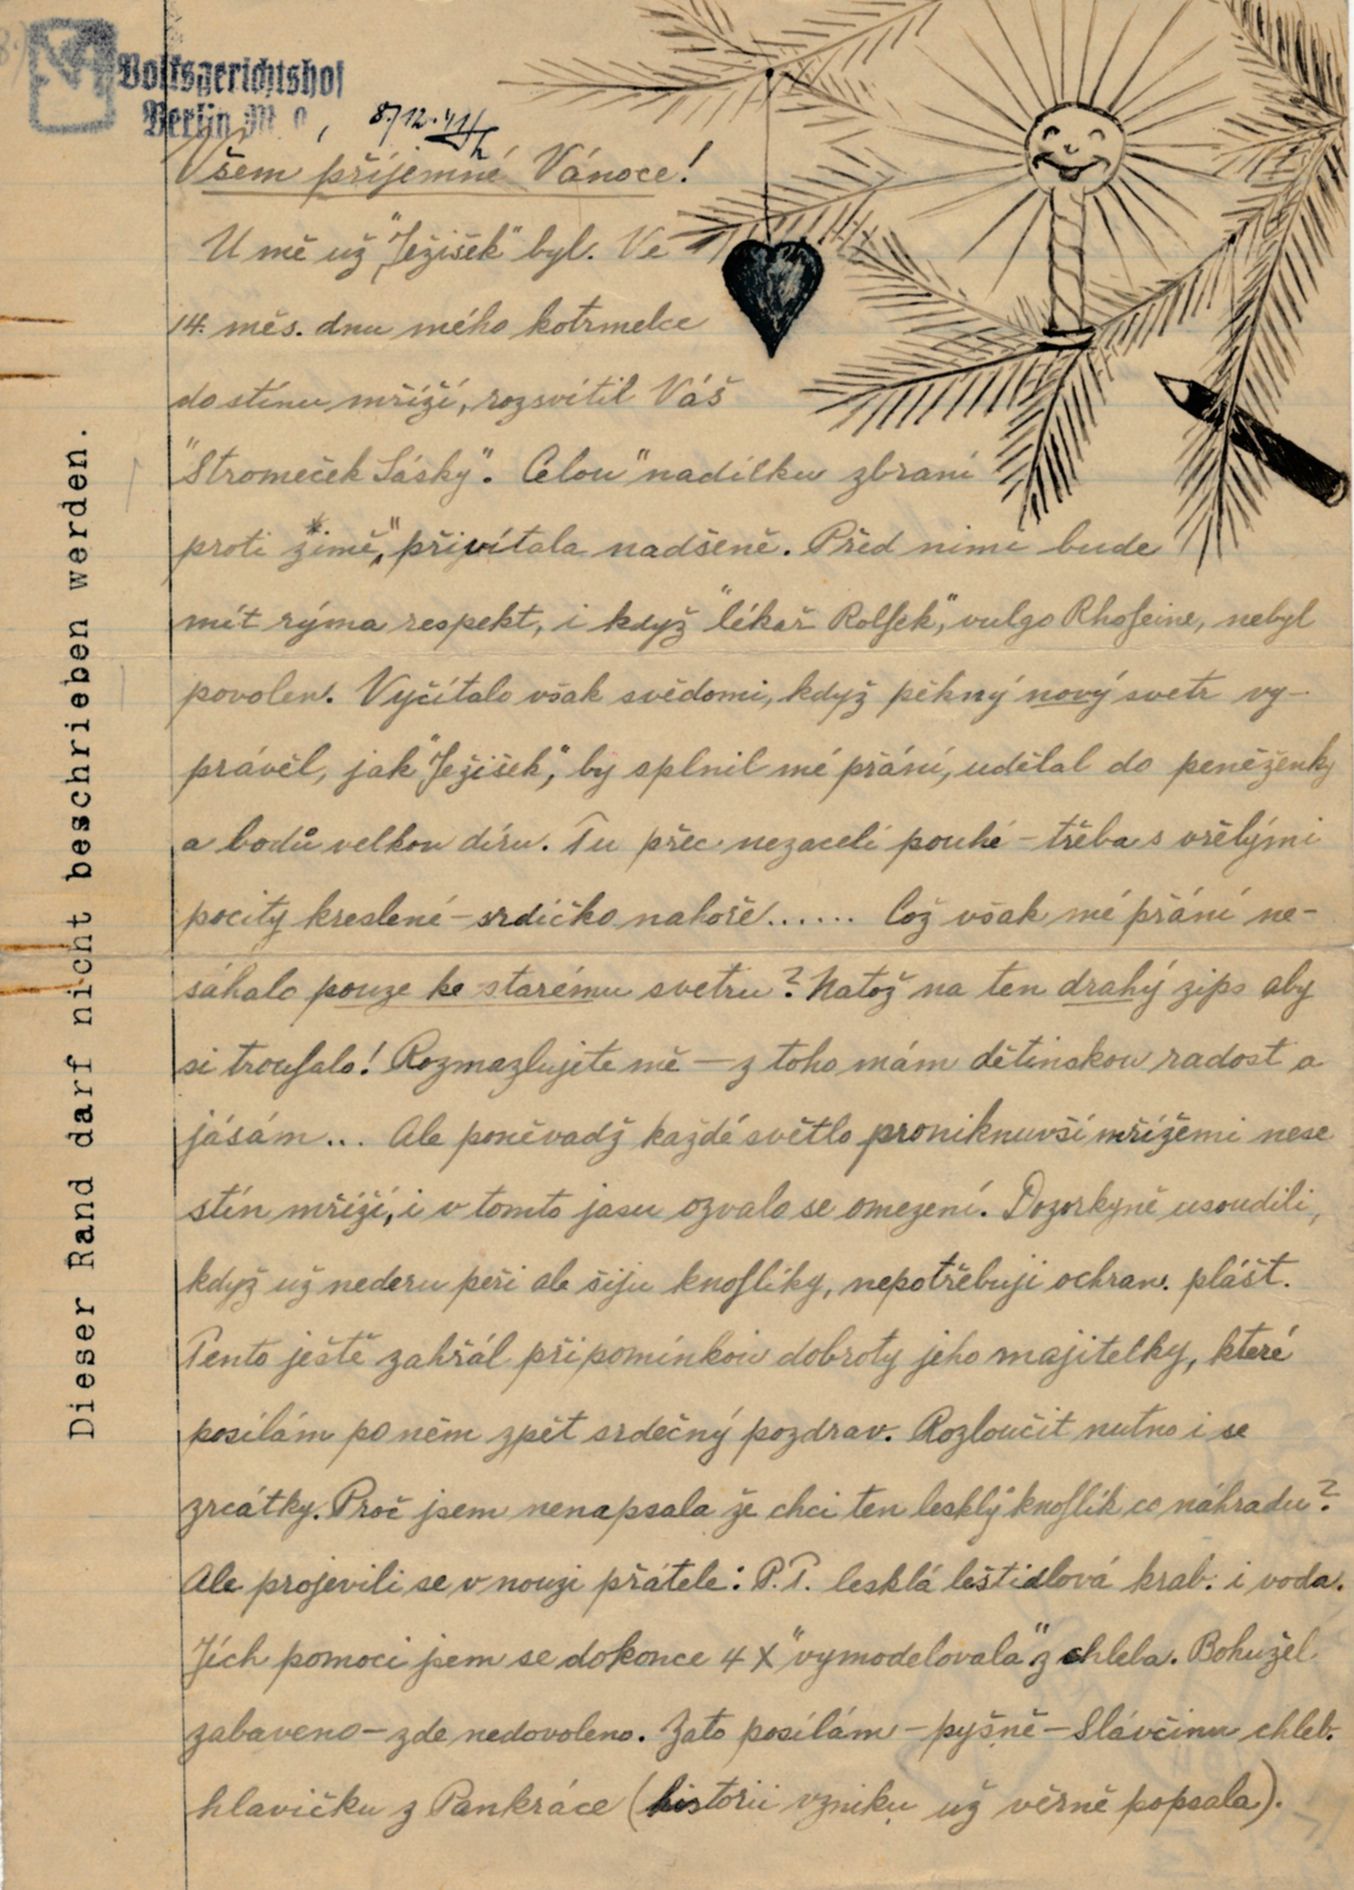 Volksgerichtshof
Berlin W. 9,
8./12. 41
Všem příjemné Vánoce!
U mě už "Ježíšek" byl. Ve
14. měs. dnu mého kotrmelce
do stínu mříží, rozsvítil Váš
"Stromeček Lásky". Celou "nadílku zbraní
proti zimě," přivítala nadšeně. Před nimi bude
mít rýma respekt, i když "lékař Rolfek," vulgo Rhofeine, nebyl
povolen. Vyčítalo však svědomí, když pěkný nový svetr vy-
právěl, jak "Ježíšek," by splnil mé přání, udělal do peněženky
a bodů velkou díru. Tu přec nezacelí pouhé - třeba s vřelými
pocity kreslené - srdíčko nahoře...... Což však mé přání ne-
sáhalo pouze ke starému svetru? Natož na ten drahý zips aby
si troufalo! Rozmazlujete mě — z toho mám dětinskou radost a
jásám... Ale poněvadž každé světlo proniknuvší mřížemi nese
stín mříží, i v tomto jasu ozvalo se omezení. Dozorkyně usoudili,
když už nederu peří ale šiju knoflíky, nepotřebuji ochran. plášt.
Tento ještě zahřál připomínkou dobroty jeho majitelky, které
posílám po něm zpět srdečný pozdrav. Rozloučit nutno i se
zrcátky. Proč jsem nenapsala že chci ten lesklý knoflík co náhradu?
Ale projevili se v nouzi přátele: P.T. lesklá leštidlová krab. i voda.
Jich pomocí jsem se dokonce 4 X "vymodelovala" z chleba. Bohužel
zabaveno - zde nedovoleno. Zato posílám - pyšně - Slávčinu chleb.
hlavičku z Pankráce (historii vzniku už věrně popsala).
Dieser Rand darf nicht beschrieben werden.